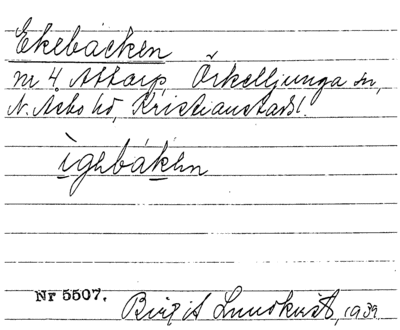 Ekebacken
nr 4 Attarp, Örkelljunga sn,
N. Åsbo hd, Kristianstads l.
ìgebákn
Nr 5507.
Birgit Lundkvist, 1939